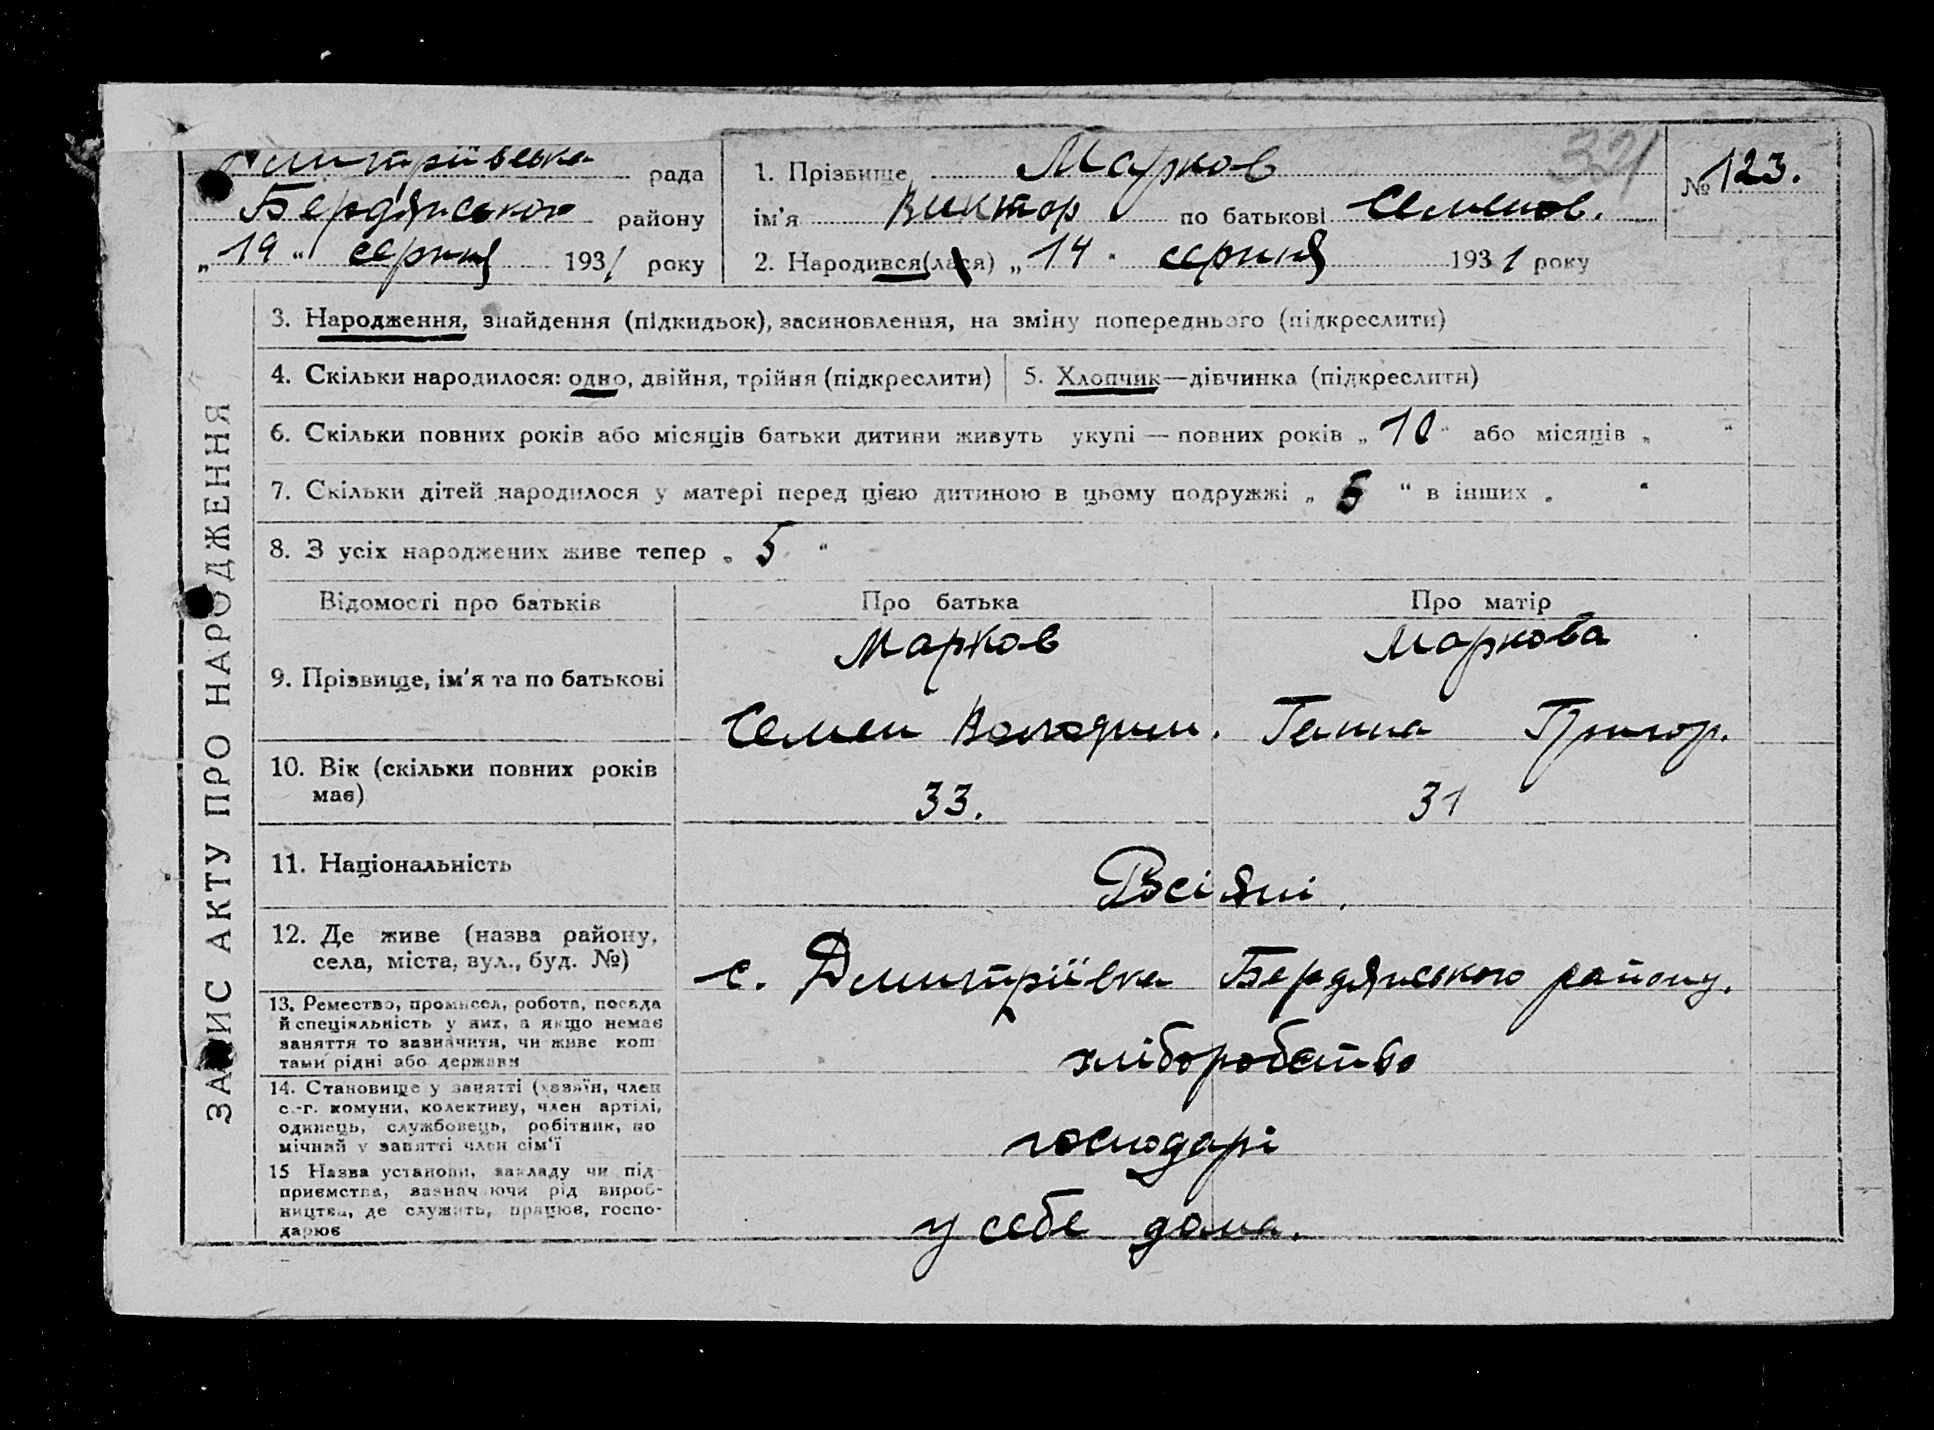 Дмитріївська рада
Бердянського району
„19“ серпня 1931 року
1. Прізвище Марков
ім'я Виктор по батькові Семенов.
2. Народився(лася) „14“ серпня 1931 року
321
№ 123.
ЗАПИС АКТУ ПРО НАРОДЖЕННЯ
3. Народження, знайдення (підкидьок), засиновлення, на зміну попереднього (підкреслити)
4. Скільки народилося: одно, двійня, трійня (підкреслити)
5. Хлопчик—дівчинка (підкреслити)
6. Скільки повних років або місяців батьки дитини живуть укупі — повних років „10“ або місяців „ “
7. Скільки дітей народилося у матері перед цією дитиною в цьому подружжі „5“ в інших „ “
8. З усіх народжених живе тепер „5“
Відомості про батьків Про батька Про матір
9. Прізвище, ім'я та по батькові
Марков Маркова
Семен Володим. Ганна Григор.
10. Вік (скільки повних років
має)
33. 31
11. Національність
Росіяні.
12. Де живе (назва району,
села, міста, вул., буд. №)
с. Дмитріївка Бердянського району.
13. Ремество, промисел, робота, посада
й спеціяльність у них, а якщо немає
заняття то зазначити, чи живе кош
тами рідні або держави
хліборобство
14. Становище у занятті (хазяїн, член
с.-г. комуни, колективу, член артілі,
одинець, службовець, робітник, по
мічний у занятті член сім'ї
господарі
15 Назва установи, закладу чи під
приємства, зазначаючи рід вироб-
ництва, де служить, працює, госпо-
дарює
у себе дома.